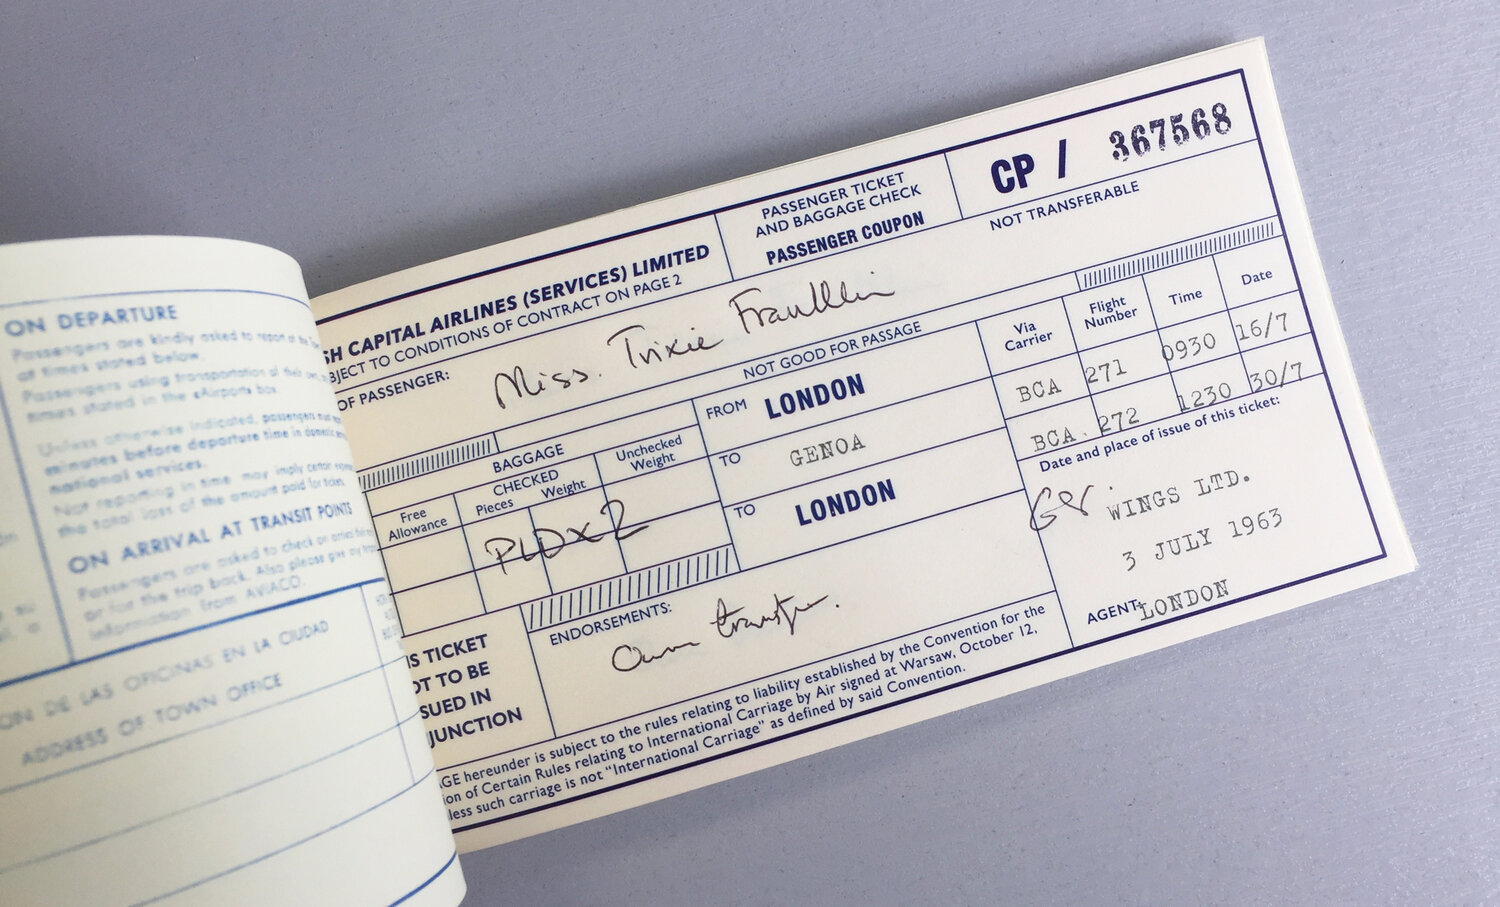 ON DEPARTURE
Passengers are kindly asked to report at the
at times stated below.
Passengers using transportation of their
times stated in the «Airport» box.
Unless otherwise indicated, passengers must
minutes before departure time in domestic
national services.
Not reporting in time may imply certain
the total loss of the amount paid for ticket.
ON ARRIVAL AT TRANSIT POINTS
Passengers are asked to check on arrival
or for the trip back. Also please give
information from AVIACO.
ON DE LAS OFICINAS EN LA CIUDAD
ADDRESS OF TOWN OFFICE
SH CAPITAL AIRLINES (SERVICES) LIMITED
BJECT TO CONDITIONS OF CONTRACT ON PAGE 2
PASSENGER TICKET
AND BAGGAGE CHECK
PASSENGER COUPON
CP / 367568
NOT TRANSFERABLE
OF PASSENGER: Miss. Trixie Franklin
NOT GOOD FOR PASSAGE
Via Carrier Flight Number Time Date
FROM LONDON BCA 271 0930 16/7
TO GENOA BCA. 272 1230 30/7
TO LONDON
BAGGAGE
CHECKED Unchecked Weight
Free Allowance Pieces Weight
PLDX2
Date and place of issue of this ticket:
WINGS LTD.
3 JULY 1963
AGENT: LONDON
IS TICKET
OT TO BE
SUED IN
JUNCTION
ENDORSEMENTS:
Own transfer.
GE hereunder is subject to the rules relating to liability established by the Convention for the
ion of Certain Rules relating to International Carriage by Air signed at Warsaw, October 12,
less such carriage is not "International Carriage" as defined by said Convention.